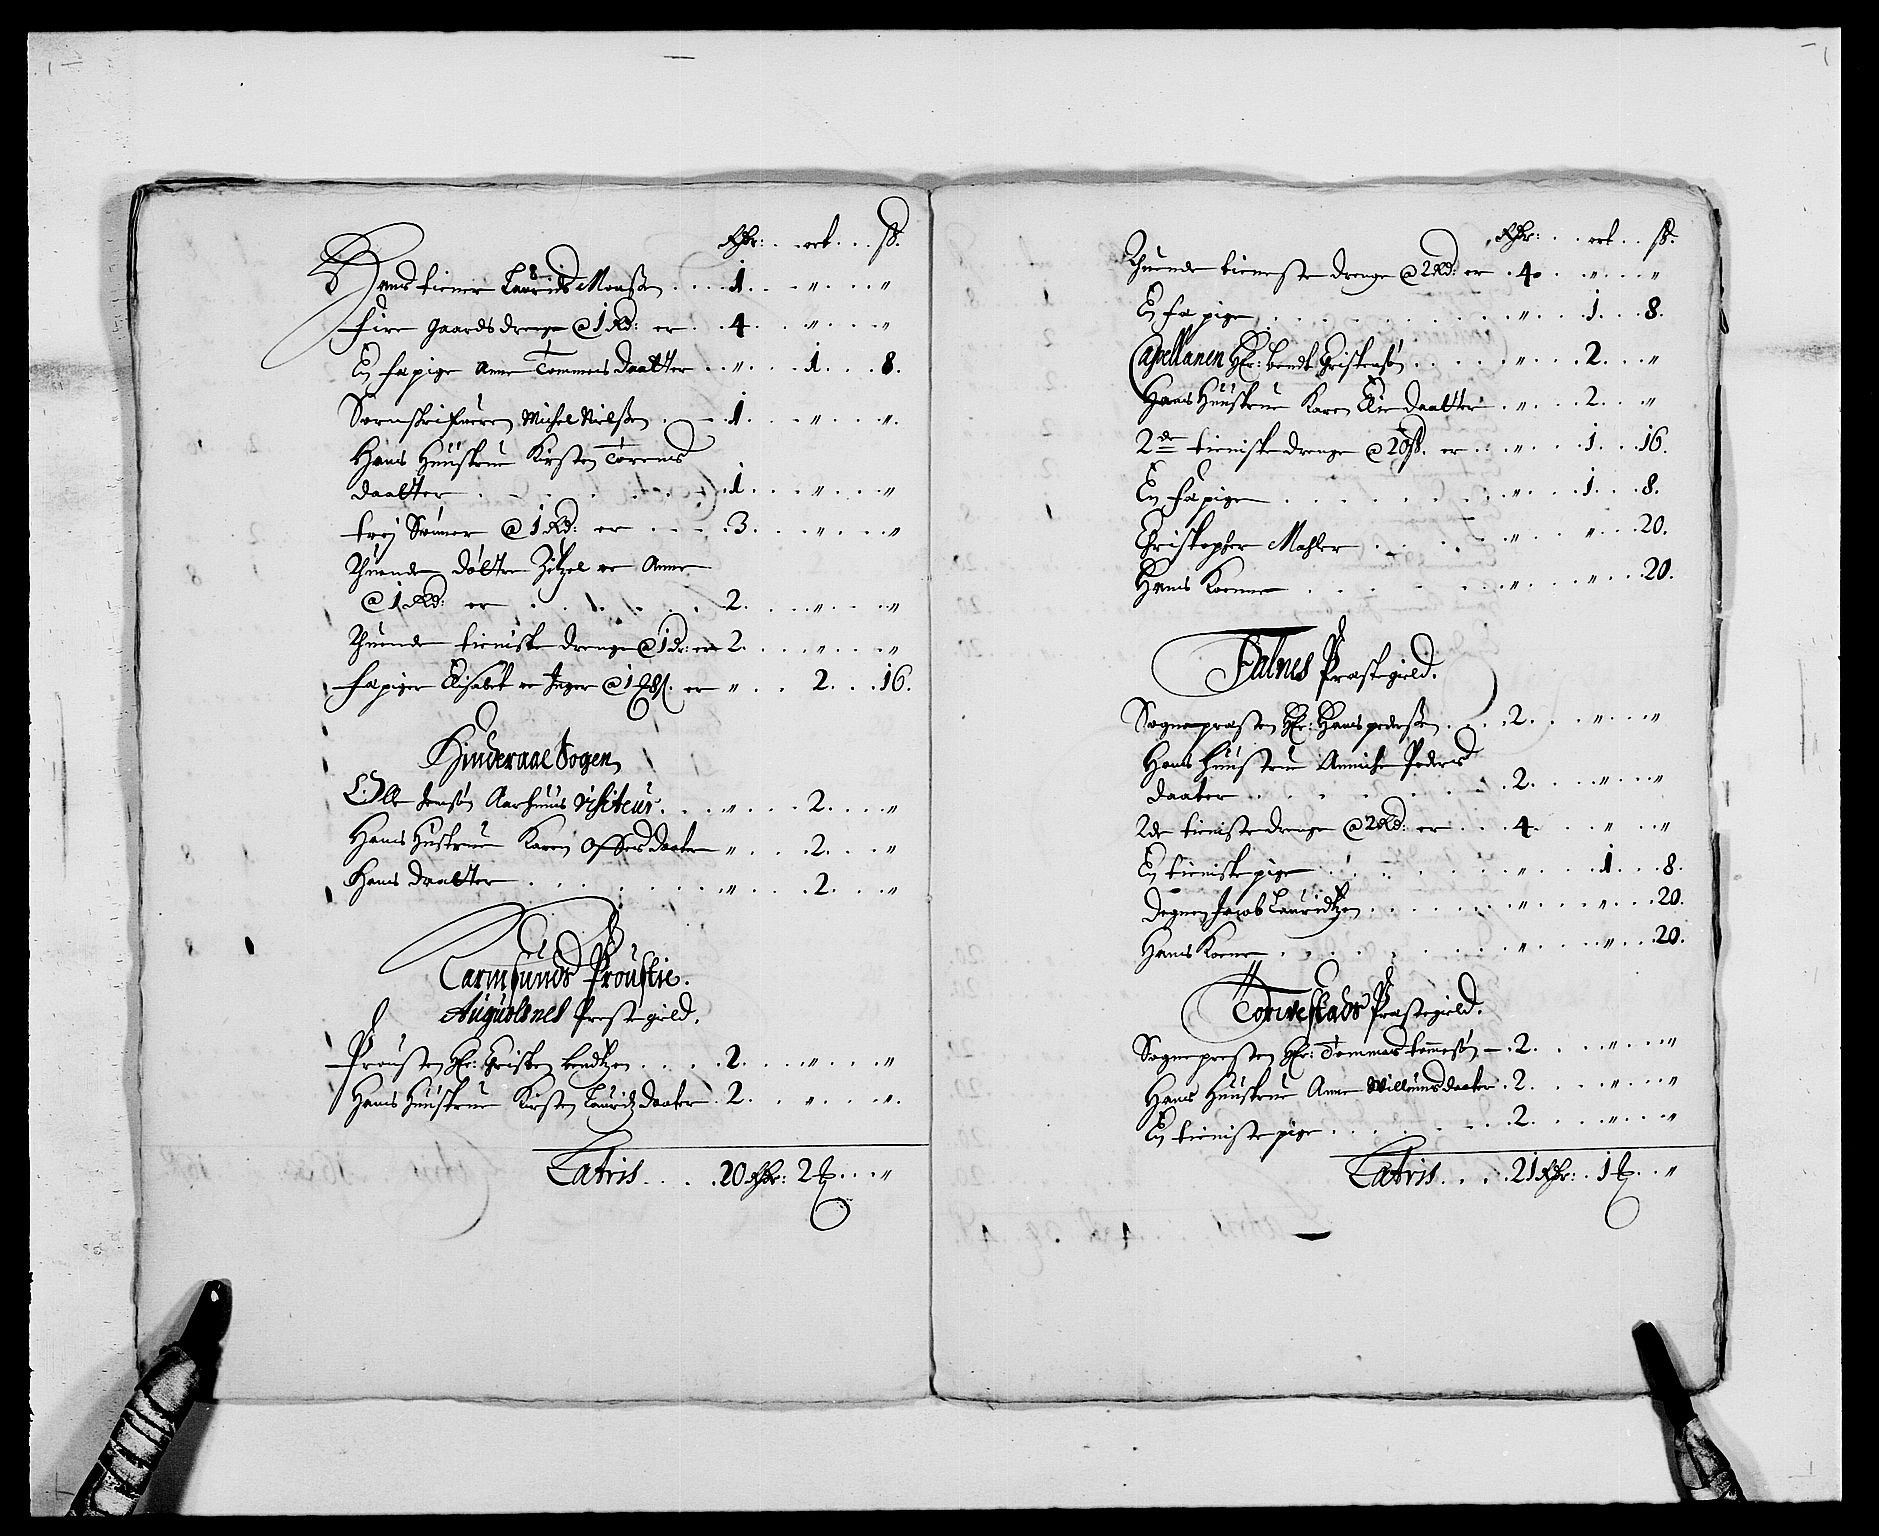 Rdr: . . ort . . . ß.
Hans tiener Laurids Monsen . . . . 1 . . . " . . . "
Fire gaards drenge @ 1 Rd: er . . 4 . . . " . . . "
En fæpige Anne Tommes daatter . . " . . . 1 . . . 8.
Sorenskrifueren Michel Nielsen . . . 1 . . . " . . . ".
Hans Huustrue Kirsten Torens
daatter . . . . . . . 1 . . . " . . . "
trej Sønner @ 1 Rd: er . . . . 3 . . . " . . . "
Thuende døttre Zitzel oc Anne
@ 1 Rd: er . . . . . . 2 . . . " . . . "
Thuende tieniste drenge @ 1 dr: er 2 . . . " . . . "
Fæpiger Elisabet oc Inger @ 1 8 ß. er " . . . 2 . . . 16.
Hinderaae Sogen
Olle Jensøn Aarhuus Visiteur . . . " . . . 2 . . . "
Hans Hustrue Karen Offers daater " . . . 2 . . . "
Hans daatter . . . . . . " . . . 2 . . . "
Carmsunds Proustie.
Augustnes Prestegield.
Prousten Hr: Christen Bendtzen . . . . 2 . . . " . . . "
Hans Huustrue Kirsten Lauritz daater . 2 . . . " . . . ".
Latris . . . . 20 Rdr: 2 . . . "
Rdr: . . . ort . . ß.
Thuende tieneste drenge @ 2 Rd: er . 4 . . . " . . . "
En fæpige . . . . . . . . " . . . 1 . . . 8.
Capellanen Hr: Bendt Christensøn . . . . . " . . . 2 . . . "
Hans Huustrue Karen daatter . " . . . 2 . . . "
2de tieniste drenge @ 20 ß. er . . " . . . 1 . . . 16.
En fæpige . . . . . . . . " . . . 1 . . . 8.
Christopher Mahler . . . . . " . . . " . . . 20.
Hans Koenne . . . . . . . " . . . " . . . 20.
Falnes Præstegield.
Sognepræsten Hr: Hans pedersen . . . 2 . . . " . . . "
Hans Huustrue Anniche Peders
daater . . . . . . . . 2 . . . " . . . "
2de tieniste drenge @ 2 Rd: er . . . 4 . . . " . . . "
En tieniste pige . . . . . . " . . . 1 . . . 8.
Degnen Jacob Lauridtzen . . . . . . " . . . " . . . 20.
Hans Koene . . . . . . . " . . . " . . . 20.
Torvestads Præstegield.
Sognepresten Hr: Tommas tommesøn – . 2 . . . " . . . "
Hans Huustrue Anne Willumsdaater . 2 . . . " . . . "
En tieniste pige . . . . . . . 2 . . . " . . . "
Latris . . . . 21 Rdr: . 1 . . "